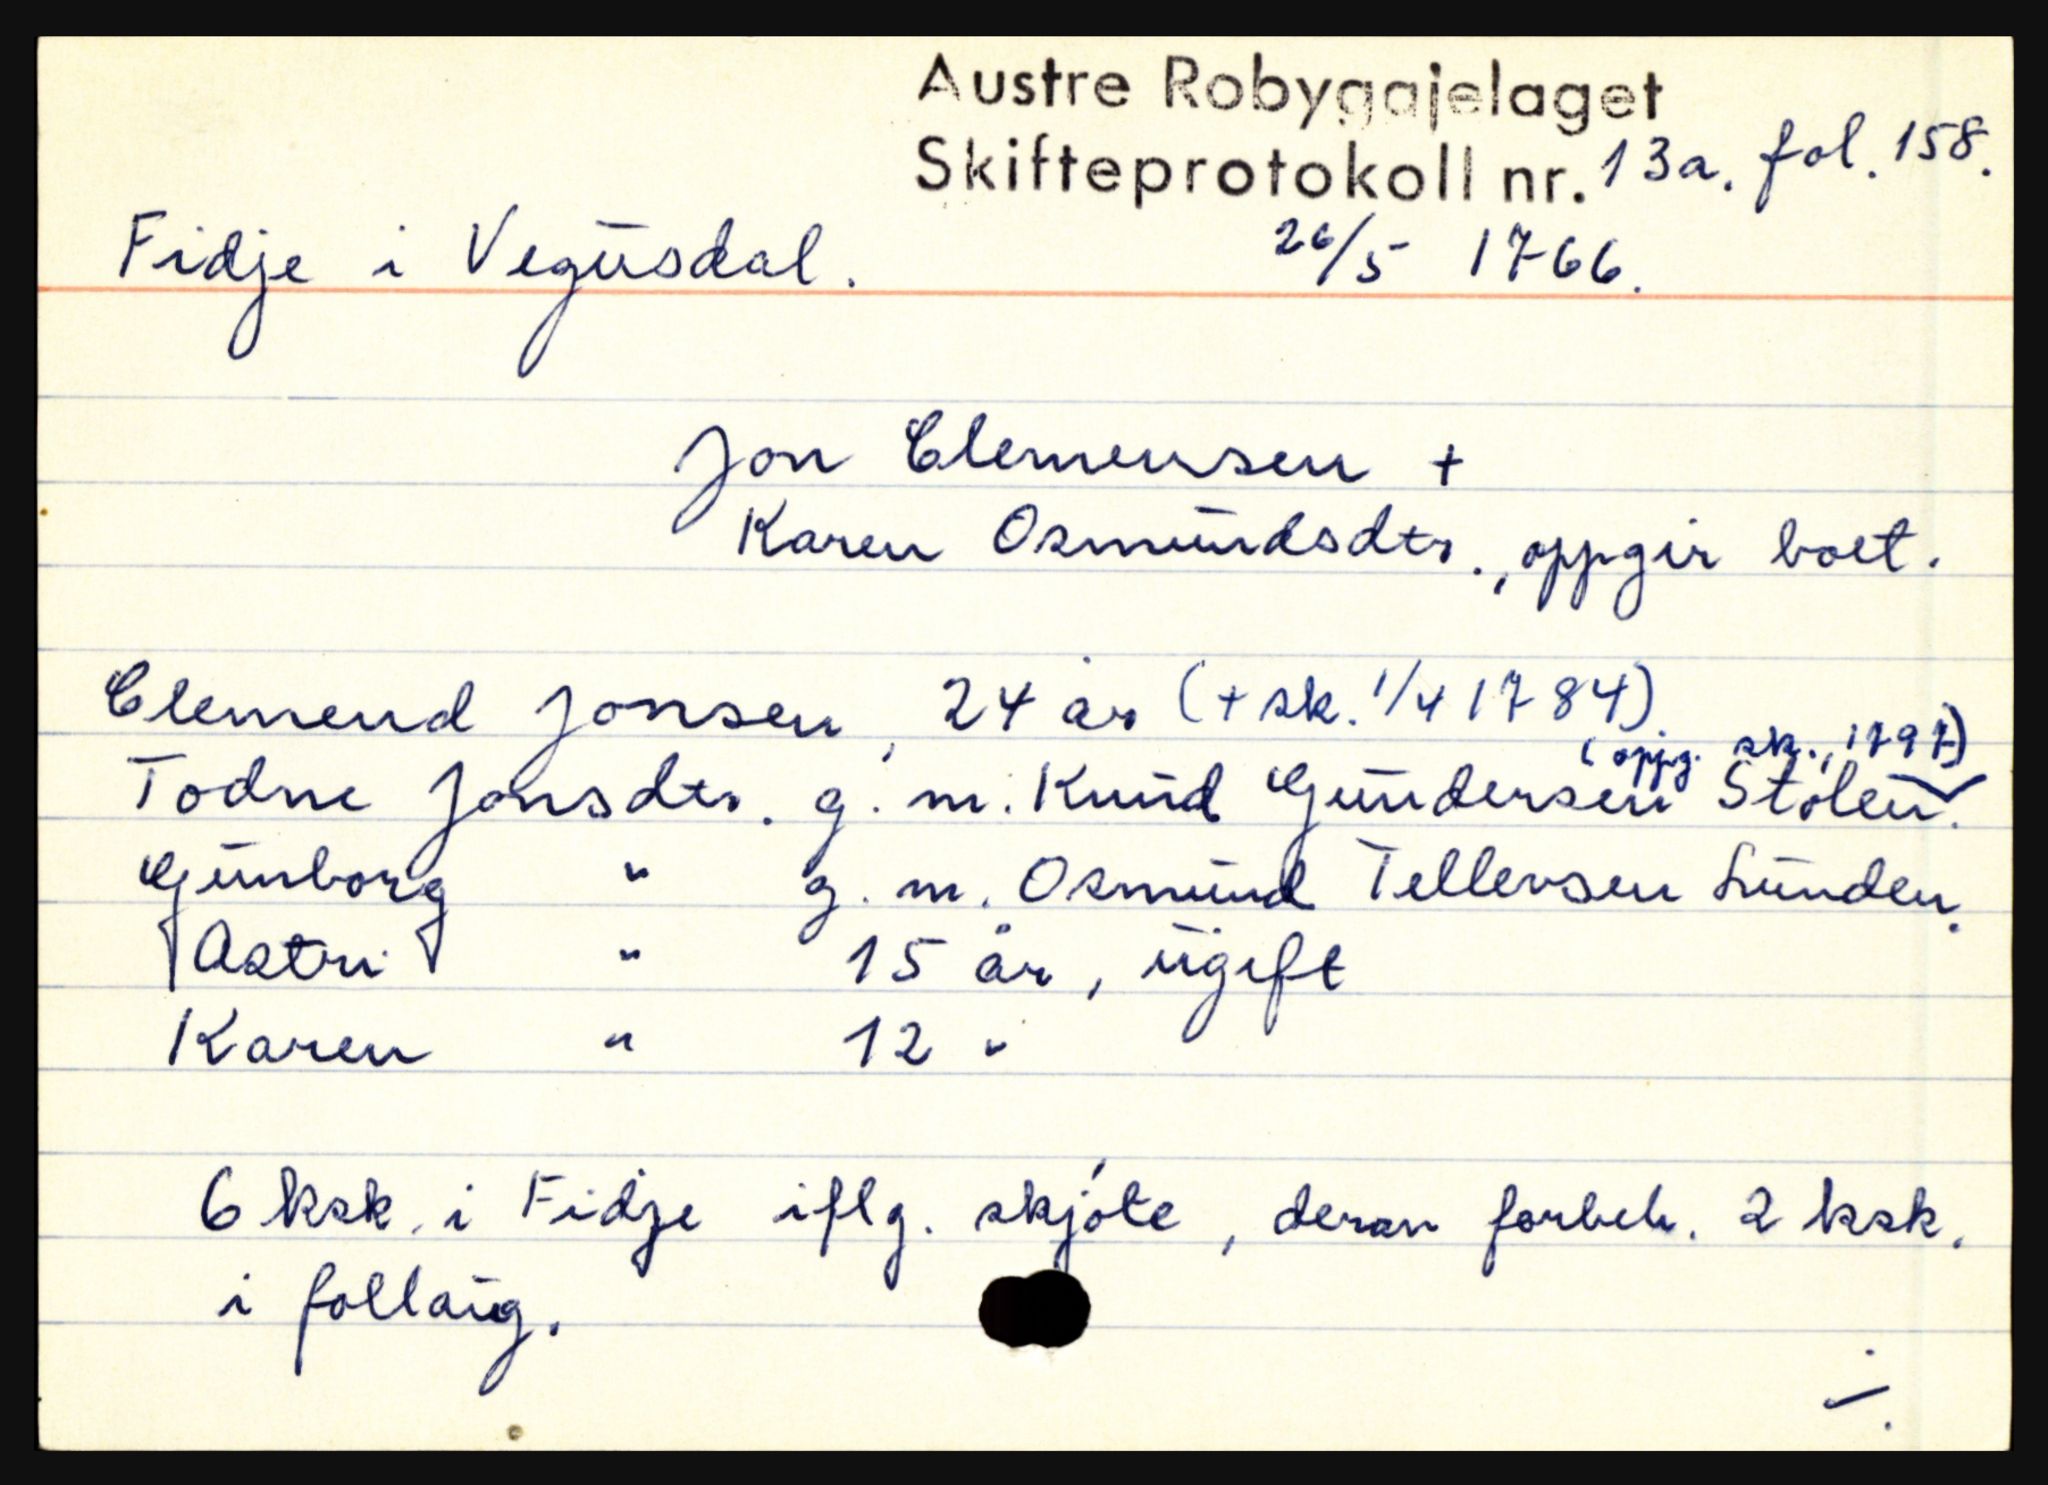 Austre Robygajelaget
Skifteprotokoll nr. 13a. fol. 158.
Fidje i Vegusdal. 26/5 1766.
Jon Clemensen +
Karen Osmundsdtr., oppgir boet.
Clemend Jonsen, 24 år (+ sk. 1/4 1784)
(oppg. sk., 1797)
Todne Jonsdtr. g. m. Knud Gundersen Stølen.
Gunborg " g. m. Osmund Tellevsen Lunden.
Astri " 15 år, ugift
Karen " 12 "
6 ksk. i Fidje iflg. skjøte, derav forbeh. 2 ksk.
i follaug.